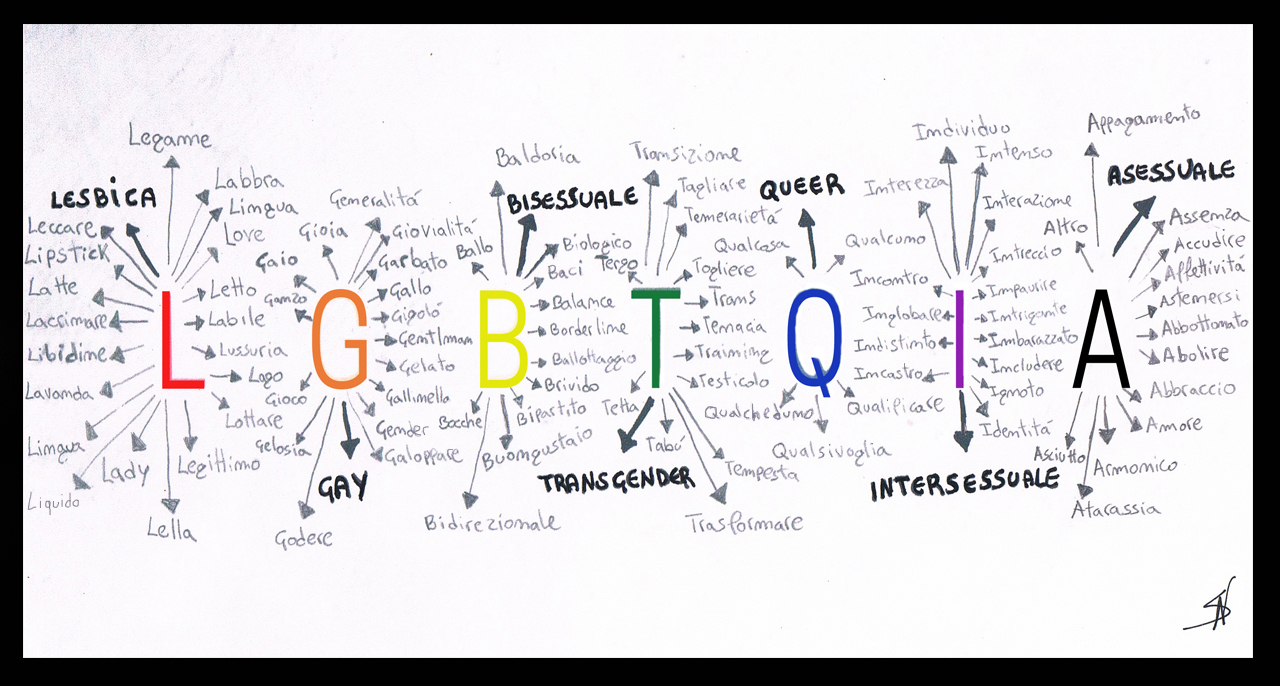 L
LESBICA
Legame
Labbra
Lingua
Love
Letto
Labile
Lussuria
Lago
Lottare
Legittimo
Lella
Lady
Liquido
Lingua
Lavanda
Libidine
Lacrimare
Latte
Lipstick
Leccare
G
Generalitá
Giovialitá
Garbato
Gallo
Gigoló
Gentlman
Gelato
Gallinella
Galoppare
Gender
GAY
Godere
Gelosia
Gioco
Ganzo
Gaio
Gioia
B
Baldoria
BISESSUALE
Biologico
Baci
Balance
Borderline
Ballottaggio
Brivido
Bipartito
Buongustaio
Bidirezionale
Bocche
Ballo
T
Transizione
Tagliare
Temerarietá
Togliere
Trans
Tenacia
Training
Testicolo
Tempesta
Trasformare
Tabú
TRANSGENDER
Tetta
Tergo
Q
QUEER
Qualcuno
Qualificare
Qualsivoglia
Qualcheduno
Qualcosa
I
Individuo
Intenso
Interazione
Intreccio
Impaurire
Intrigante
Imbarazzato
Includere
Ignoto
Identitá
INTERSESSUALE
Incastro
Indistinto
Inglobare
Incontro
Interezza
A
Appagamento
ASESSUALE
Assenza
Accudire
Affettivitá
Astenersi
Abbottonato
Abolire
Abbraccio
Amore
Armonico
Atarassia
Asciutto
Altro